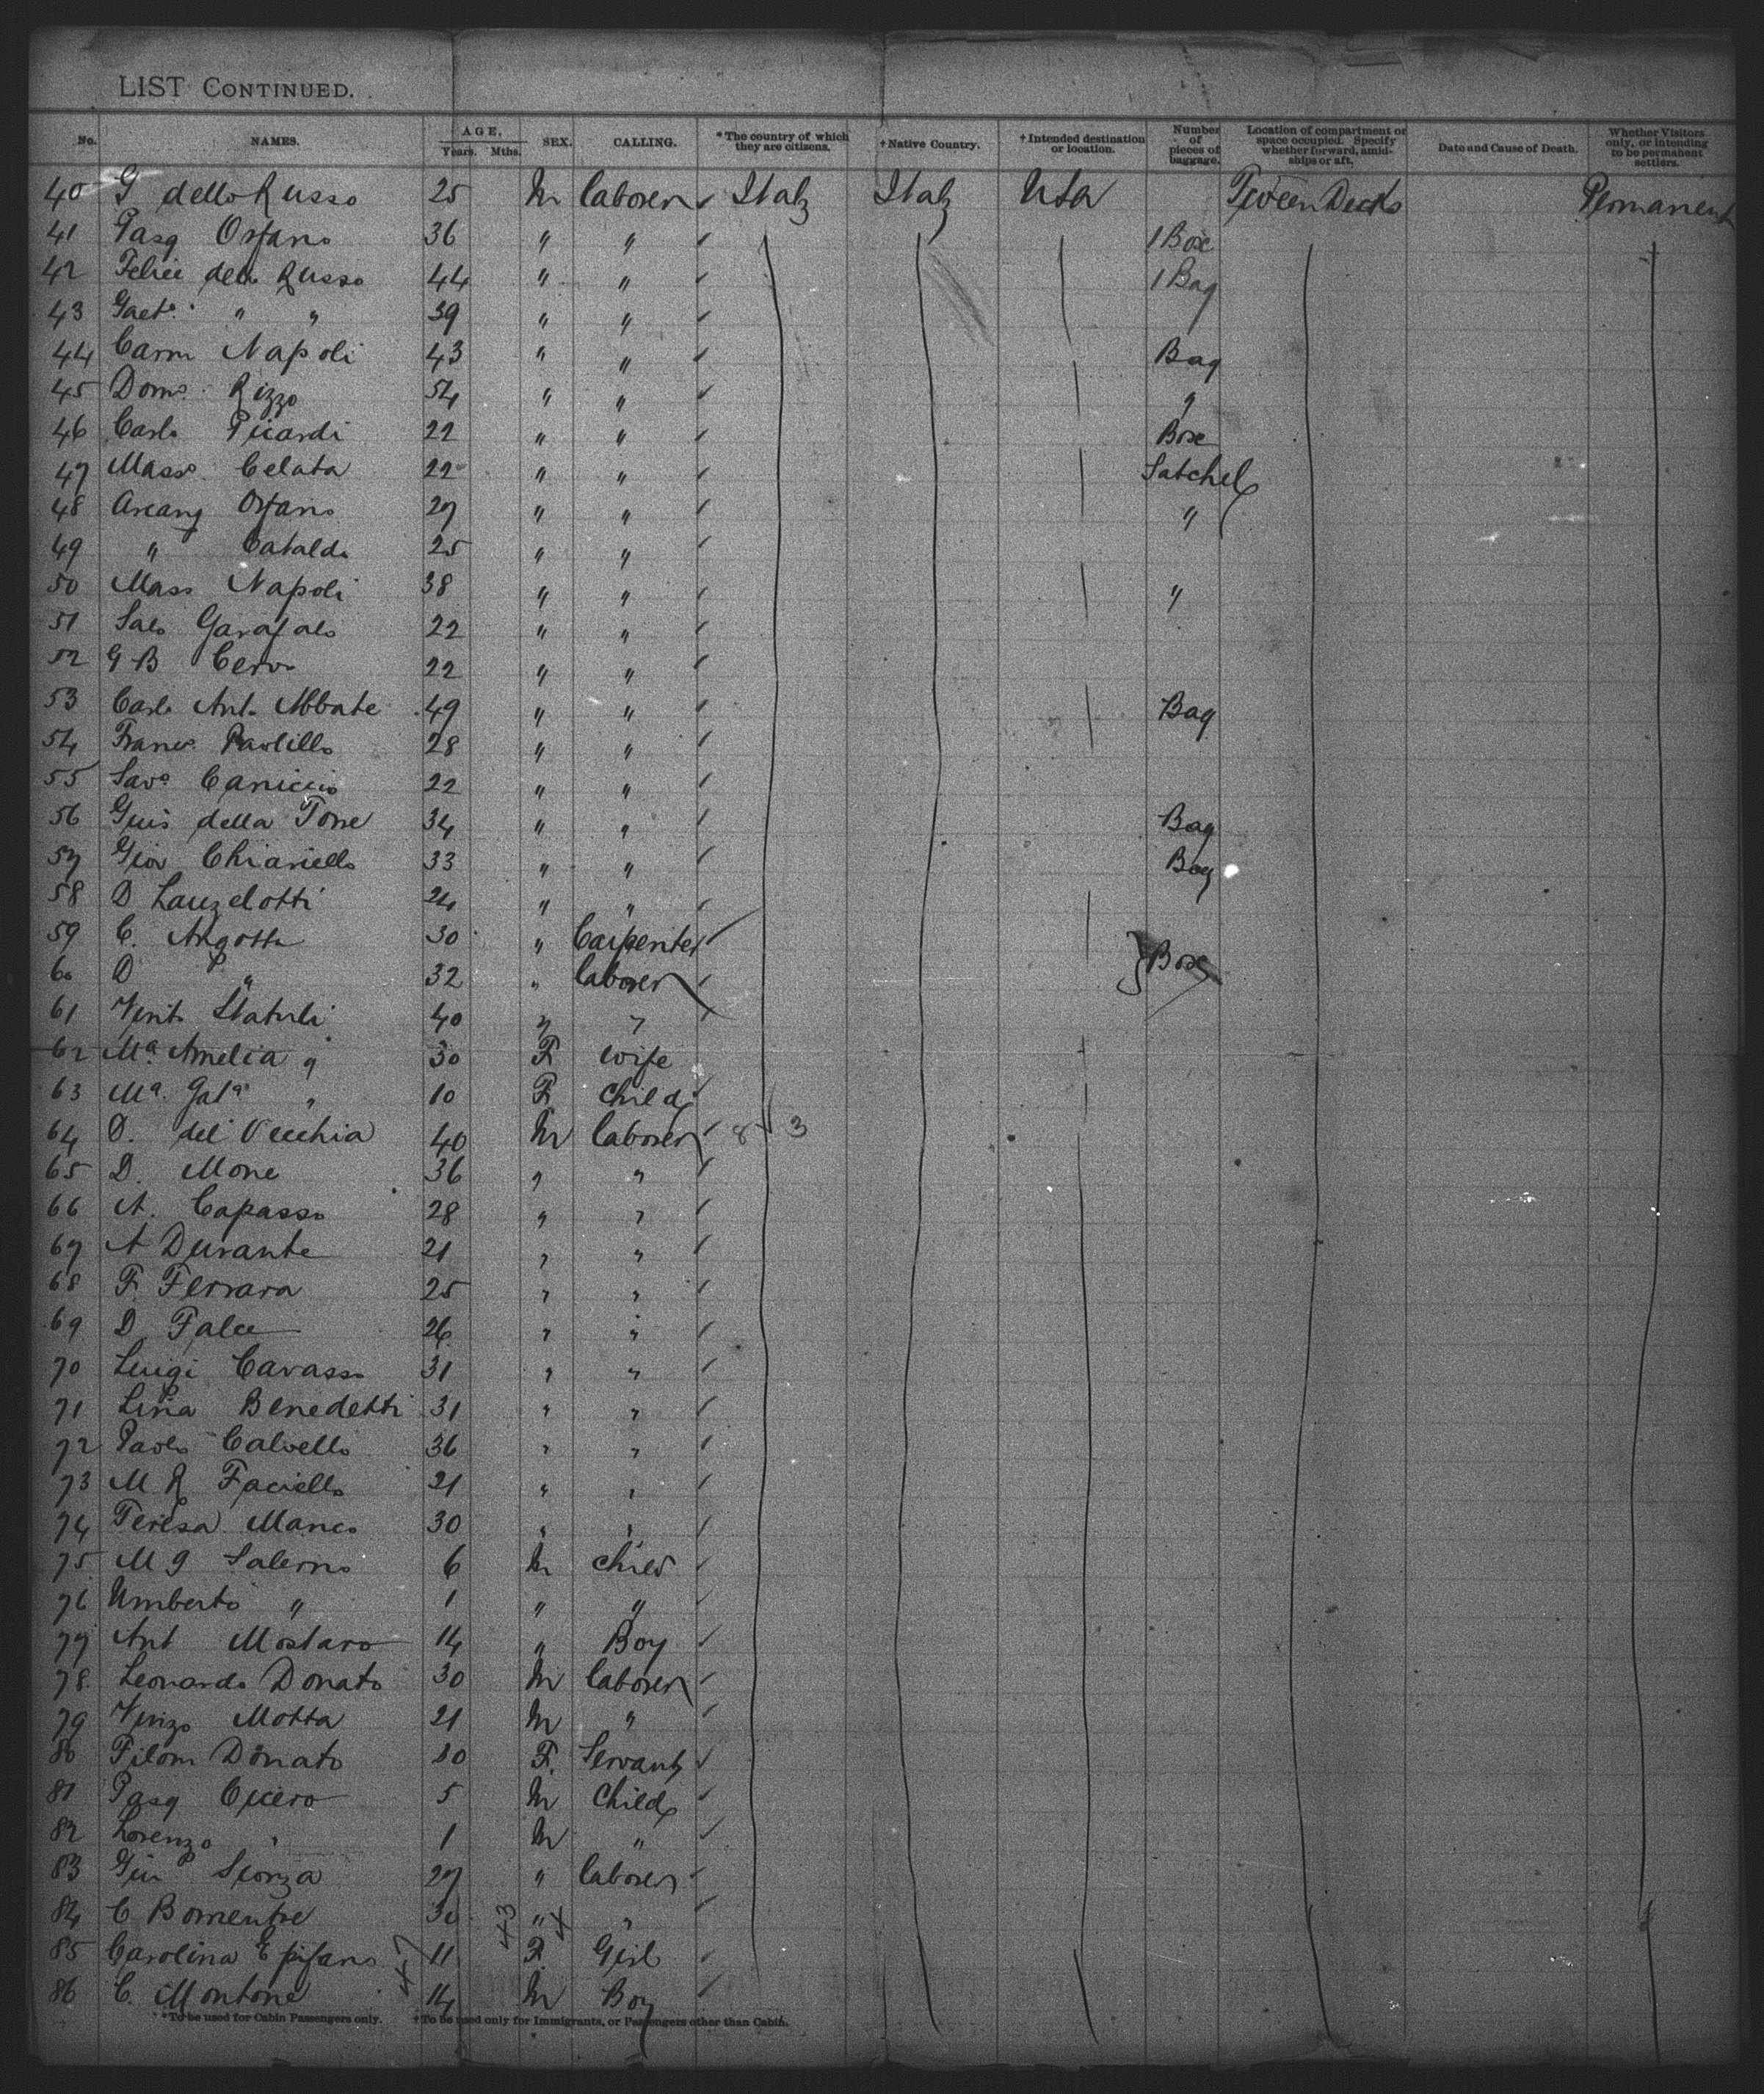 LIST CONTINUED.
No. NAMES. AGE. Years. Mths. SEX. CALLING. *The country of which they are citizens. †Native Country. †Intended destination or location. Number of pieces of baggage. Location of compartment or space occupied. Specify whether forward, amidships or aft. Date and Cause of Death. Whether Visitors only, or intending to be permanent settlers.
40 G dello Russo 25 M laborer Italy Italy USA Tween Decks Permanent
41 Pasq Orfano 36 " " 1 Box
42 Felice dello Russo 44 " " 1 Bag
43 Gaet° " " 39 " "
44 Carm Napoli 43 " " Bag
45 Dom° Rizzo 54 " " "
46 Carlo Picardi 22 " " Box
47 Mass° Celata 22 " " Satchel
48 Arcang Orfano 27 " " "
49 " Cataldo 25 " "
50 Mass Napoli 38 " " "
51 Salv Garafalo 22 " "
52 G B Cervo 22 " "
53 Carlo Ant. Abbate 49 " " Bag
54 Franc° Paolillo 28 " "
55 Sav° Caniccio 22 " "
56 Guis della Torre 34 " " Bag
57 Giov Chiariello 33 " " Bag
58 D Lanzelotti 24 " "
59 C. Argotta 30 " Carpenter } Box
60 D " 32 " laborer
61 Vint 40 " "
62 Ma. Amelia " 30 F wife
63 Ma. " 10 F Child
64 D. del Vecchia 40 M laborer 8 3
65 D. Mone 36 " "
66 A. Capasso 28 " "
67 A Durante 21 " "
68 F. Ferrara 25 " "
69 D Falce 26 " "
70 Luigi Cavasso 31 " "
71 Lina Benedetti 31 " "
72 Paolo Calvello 36 " "
73 M R Faciello 21 " "
74 Teresa Manco 30 " "
75 M G Salerno 6 M Child
76 Umberto " 1 " "
77 Ant Mostaro 14 " Boy
78 Leonardo Donato 30 M laborer
79 Vinzo Motta 21 M "
80 Filom Donato F. Servant
81 Pasq Cicero 5 M Child
82 Lorenzo " 1 M "
83 Giu Sforza 27 " laborer
84 C Bomentre 30 " "
85 Carolina Epifano 11 F. Girl
86 C. Montone 14 M Boy
*To be used for Cabin Passengers only. †To be used only for Immigrants, or Passengers other than Cabin.